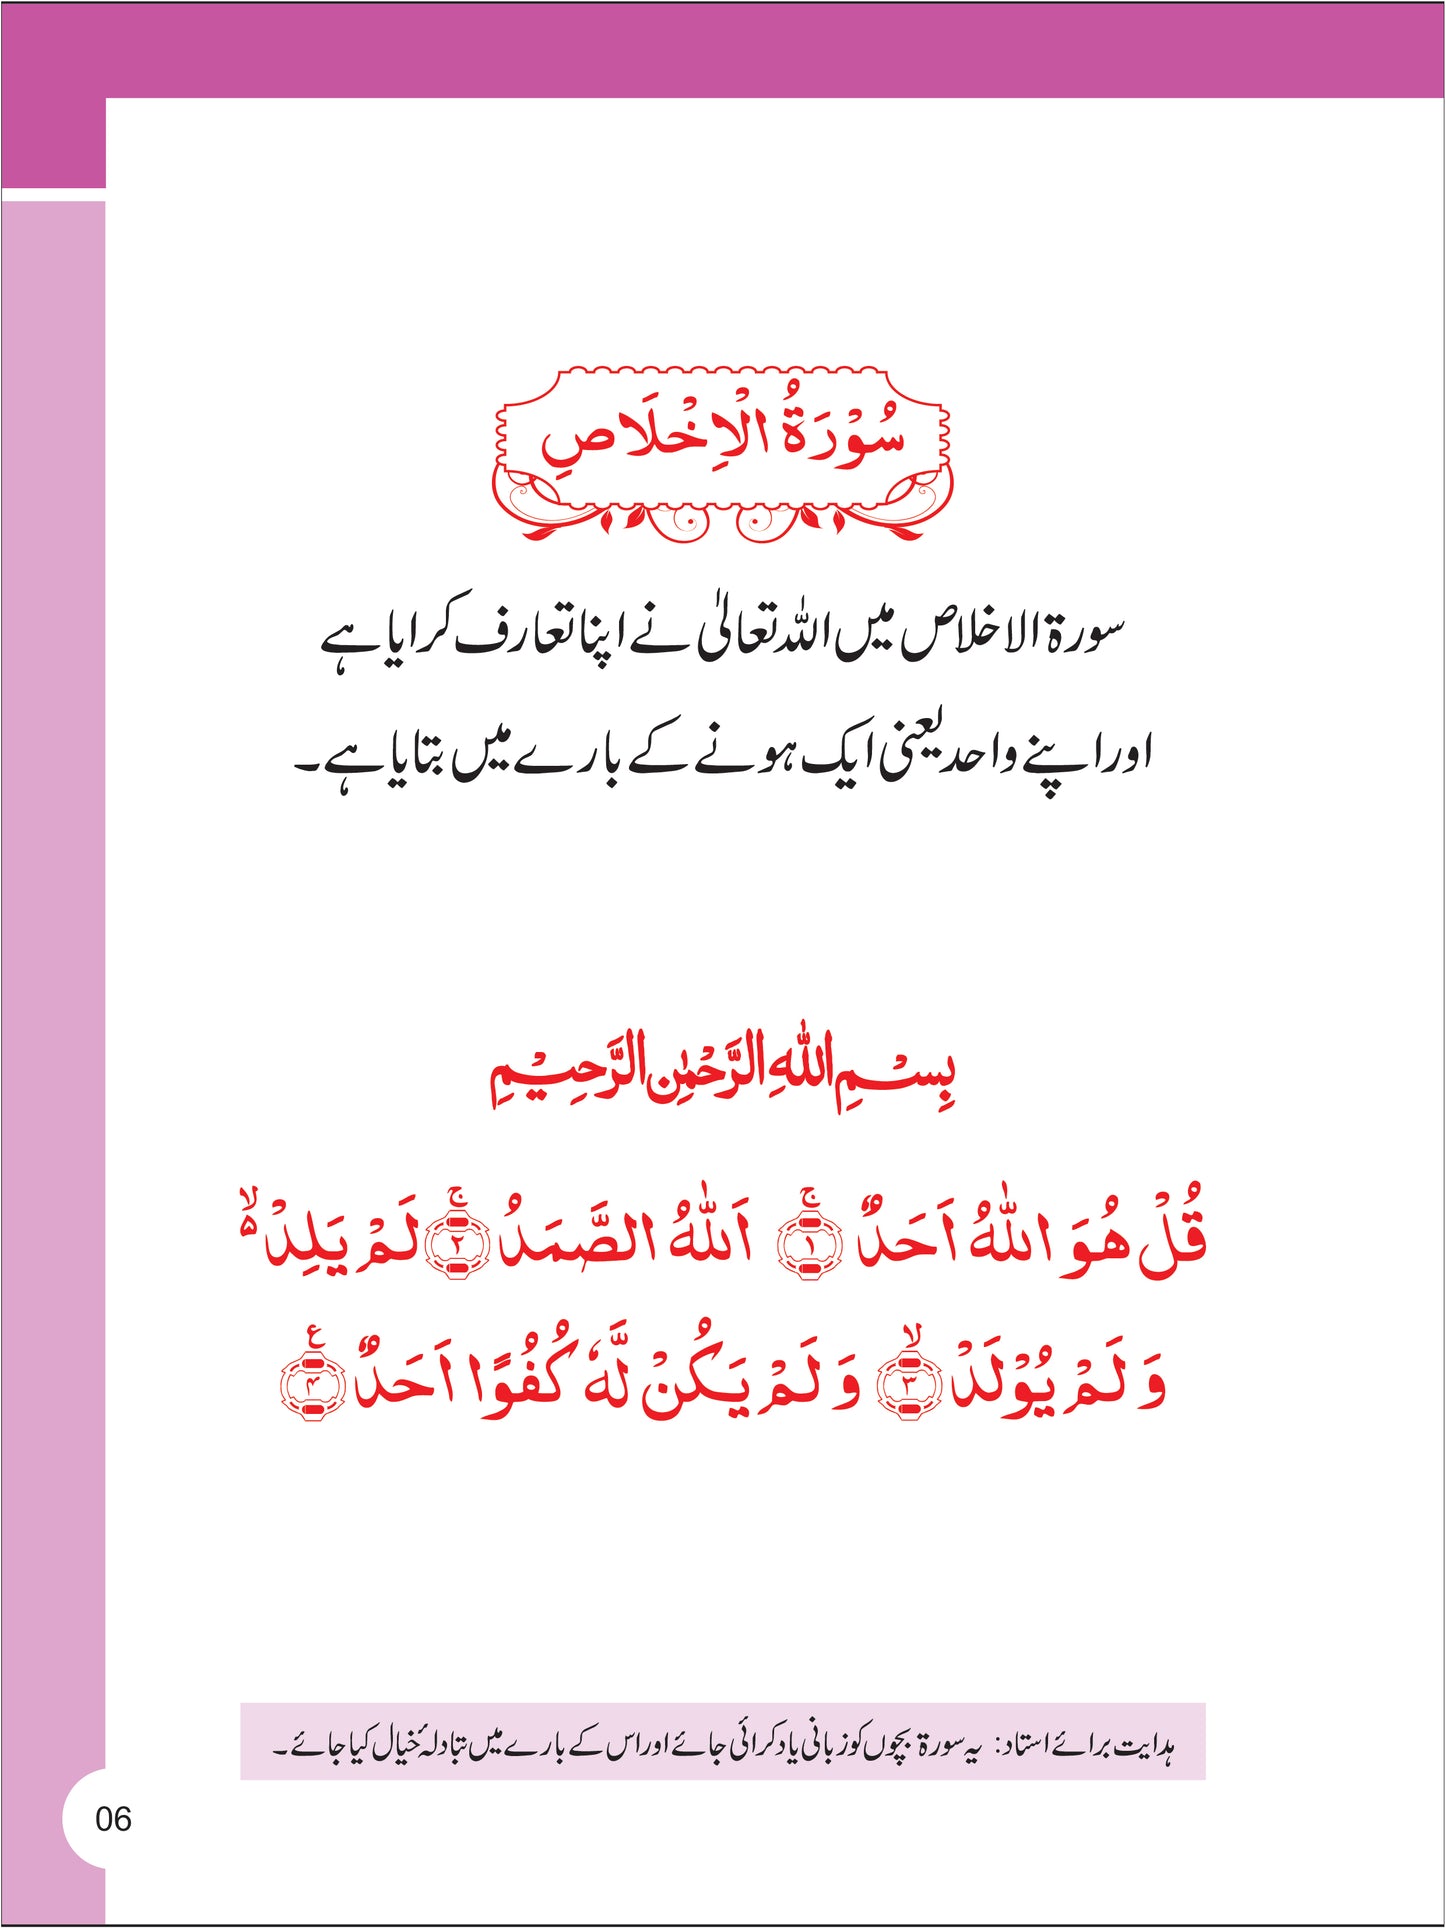 سُوْرَةُ الْاِخْلَاصِ
سورۃ الاخلاص میں اللہ تعالیٰ نے اپنا تعارف کرایا ہے
اور اپنے واحد یعنی ایک ہونے کے بارے میں بتایا ہے۔
بِسْمِ اللّٰهِ الرَّحْمٰنِ الرَّحِيْمِ
قُلْ هُوَ اللّٰهُ اَحَدٌ ۚ‏﴿۱﴾ اَللّٰهُ الصَّمَدُ ۚ‏﴿۲﴾ لَمْ يَلِدْ ۙ۬
وَ لَمْ يُوْلَدْ ۙ‏﴿۳﴾ وَ لَمْ يَكُنْ لَّهٗ كُفُوًا اَحَدٌ ﴿۴﴾ ع
ہدایت برائے استاد: یہ سورۃ بچوں کو زبانی یاد کرائی جائے اور اس کے بارے میں تبادلۂ خیال کیا جائے۔
06